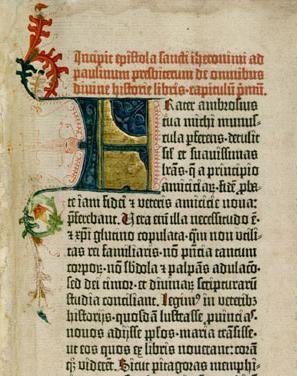 Incipit epistola sancti iheronimi ad
paulinum presbiterum de omnibus
divine historie libris. capitulū pmū.
Frater ambrosius
tua michi munus-
cula pferens. detulit
sil et suavissimas
lrās. q a principio
amicicia4. fidē pba-
te iam fidei et veteris amicicie nova:
pferebant. Vera eni illa necessitudo ē.
et xpi glutino copulata. qm non utili-
tas rei familiaris. nō pncia tantum
corpo4. nō sbdola et palpās adulaco.
sed dei timor. et divina4 scripturarū
studia conciliant. Legim9 in veterib3
historijs. quosdā lustrasse puincias.
novos adijsse pplos. maria trāsisse.
ut eos quos ex libris noverant: corā
q; viderēt. Sicut pitagoras memphi-